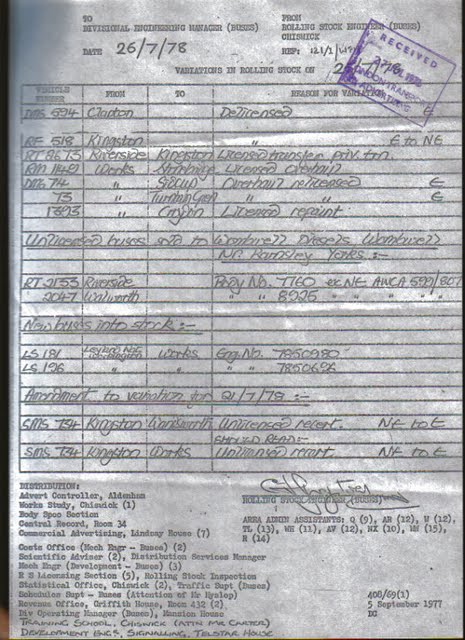 TO FROM
DIVISIONAL ENGINEERING MANAGER (BUSES) ROLLING STOCK ENGINEER (BUSES)
CHISWICK
DATE 26/7/78 REF: 121/2/
RECEIVED
VARIATIONS IN ROLLING STOCK ON
VEHICLE NUMBER FROM TO REASON FOR
DMS 694 Clapton Delicensed
RF 518 Kingston " E to NE
RT 8673 Riverside Kingston Licensed transfer
RM 1149 Works Licensed overhaul
DMS 74 " Sidcup Overhaul relicensed E
73 " Turnham Green " " E
1393 " Croydon Licensed repaint
Unlicensed buses sold to Wombwell Diesels, Wombwell
Nr. Barnsley Yorks :-
RT 2153 Riverside Body No. 7760 ex NE AWCA 599/807
2047 Walworth " " 8925 " " " "
New buses into stock :-
LS 181 Leyland Nat. Workington Works Eng. No. 7850980
LS 196 " " " 7850696
Amendment to variation for 21/7/78 :-
SMS 794 Kingston Wandsworth Unlicensed recert. NE to E
SHOULD READ:-
SMS 734 Kingston Works Unlicensed recert. NE to E
DISTRIBUTION:
Advert Controller, Aldenham
Works Study, Chiswick (1)
Body Spec Section
Central Record, Room 34
Commercial Advertising, Lindsay House (7)
Costs Office (Mech Engr - Buses) (2)
Scientific Adviser (2), Distribution Services Manager
Mech Engr (Development - Buses) (3)
R S Licensing Section (5), Rolling Stock Inspection
Statistical Office, Chiswick (2), Traffic Supt (Buses)
Schedules Supt - Buses (Attention of Mr Hyslop)
Revenue Office, Griffith House, Room 432 (2)
Div Operating Manager (Buses), Mansion House
TRAINING SCHOOL, CHISWICK (ATTN MR CARTER)
DEVELOPMENT ENG'S, SIGNALLING, TELSTAR HOUSE
ROLLING STOCK ENGINEER (BUSES)
AREA ADMIN ASSISTANTS: Q (9), AR (12), W (12),
TL (13), WH (11), AV (12), NX (10), WM (15),
H (14)
400/69(1)
5 September 1977
DG